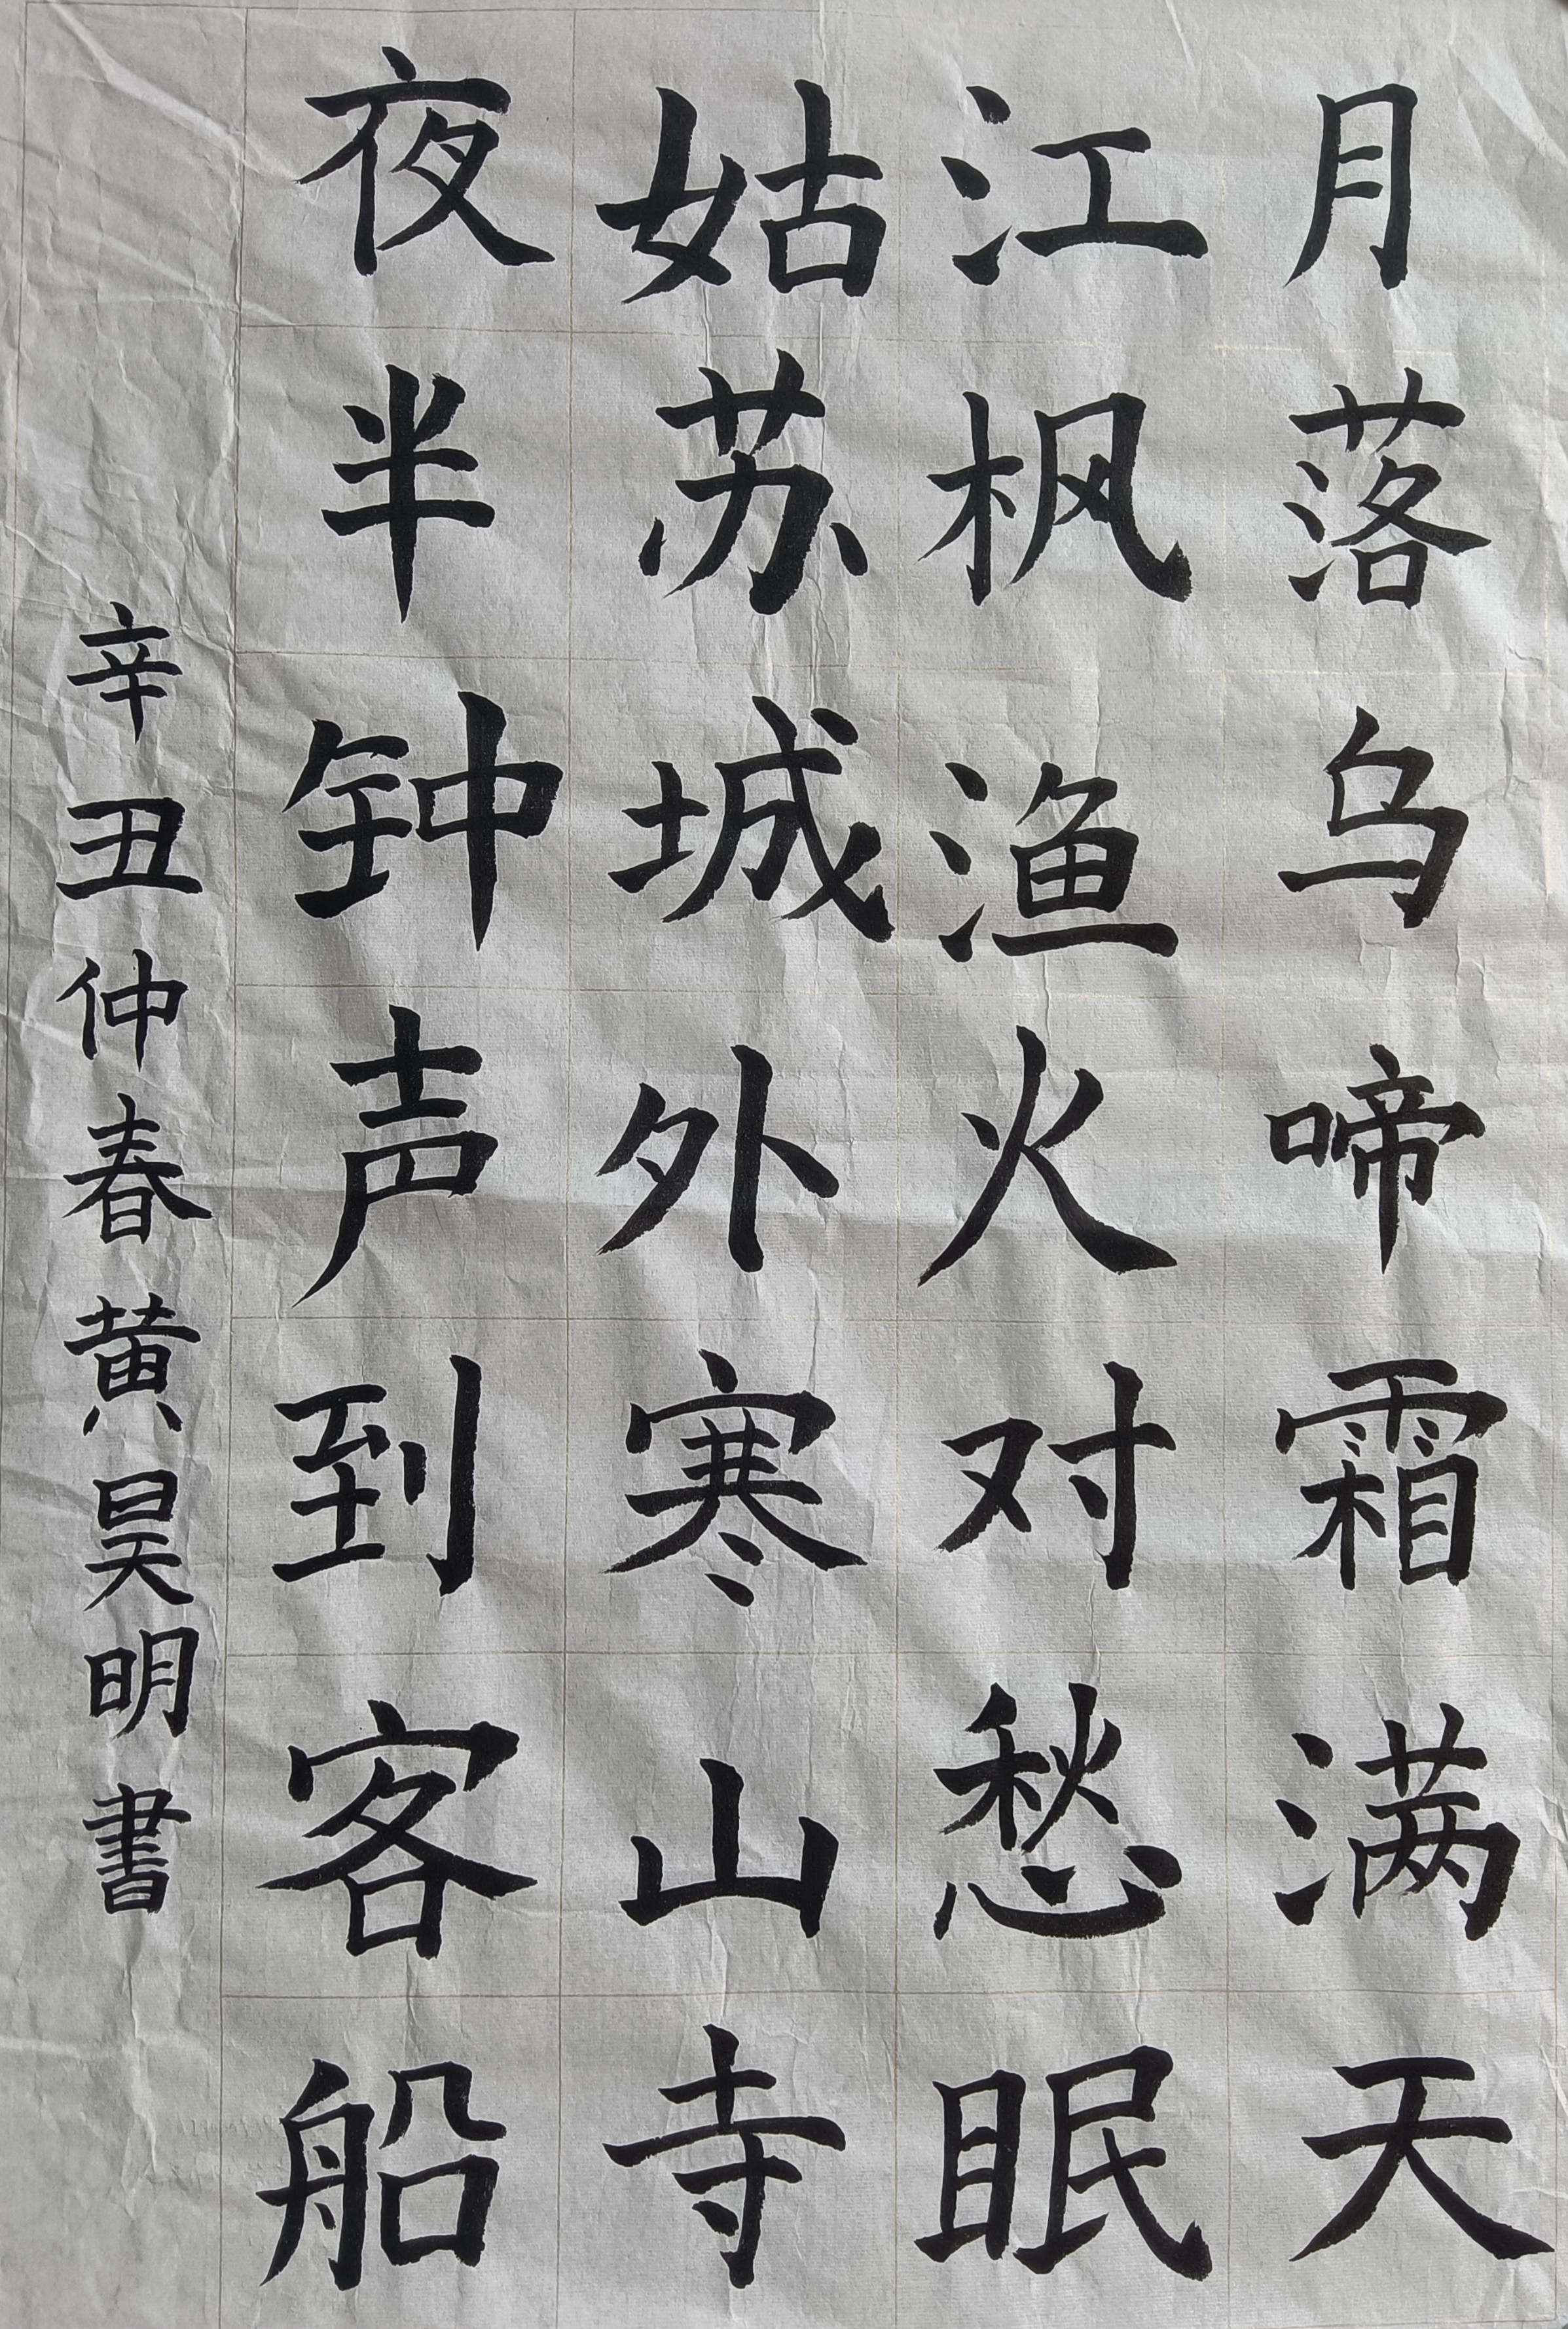 月落乌啼霜满天
江枫渔火对愁眠
姑苏城外寒山寺
夜半钟声到客船
辛丑仲春黄昊明書